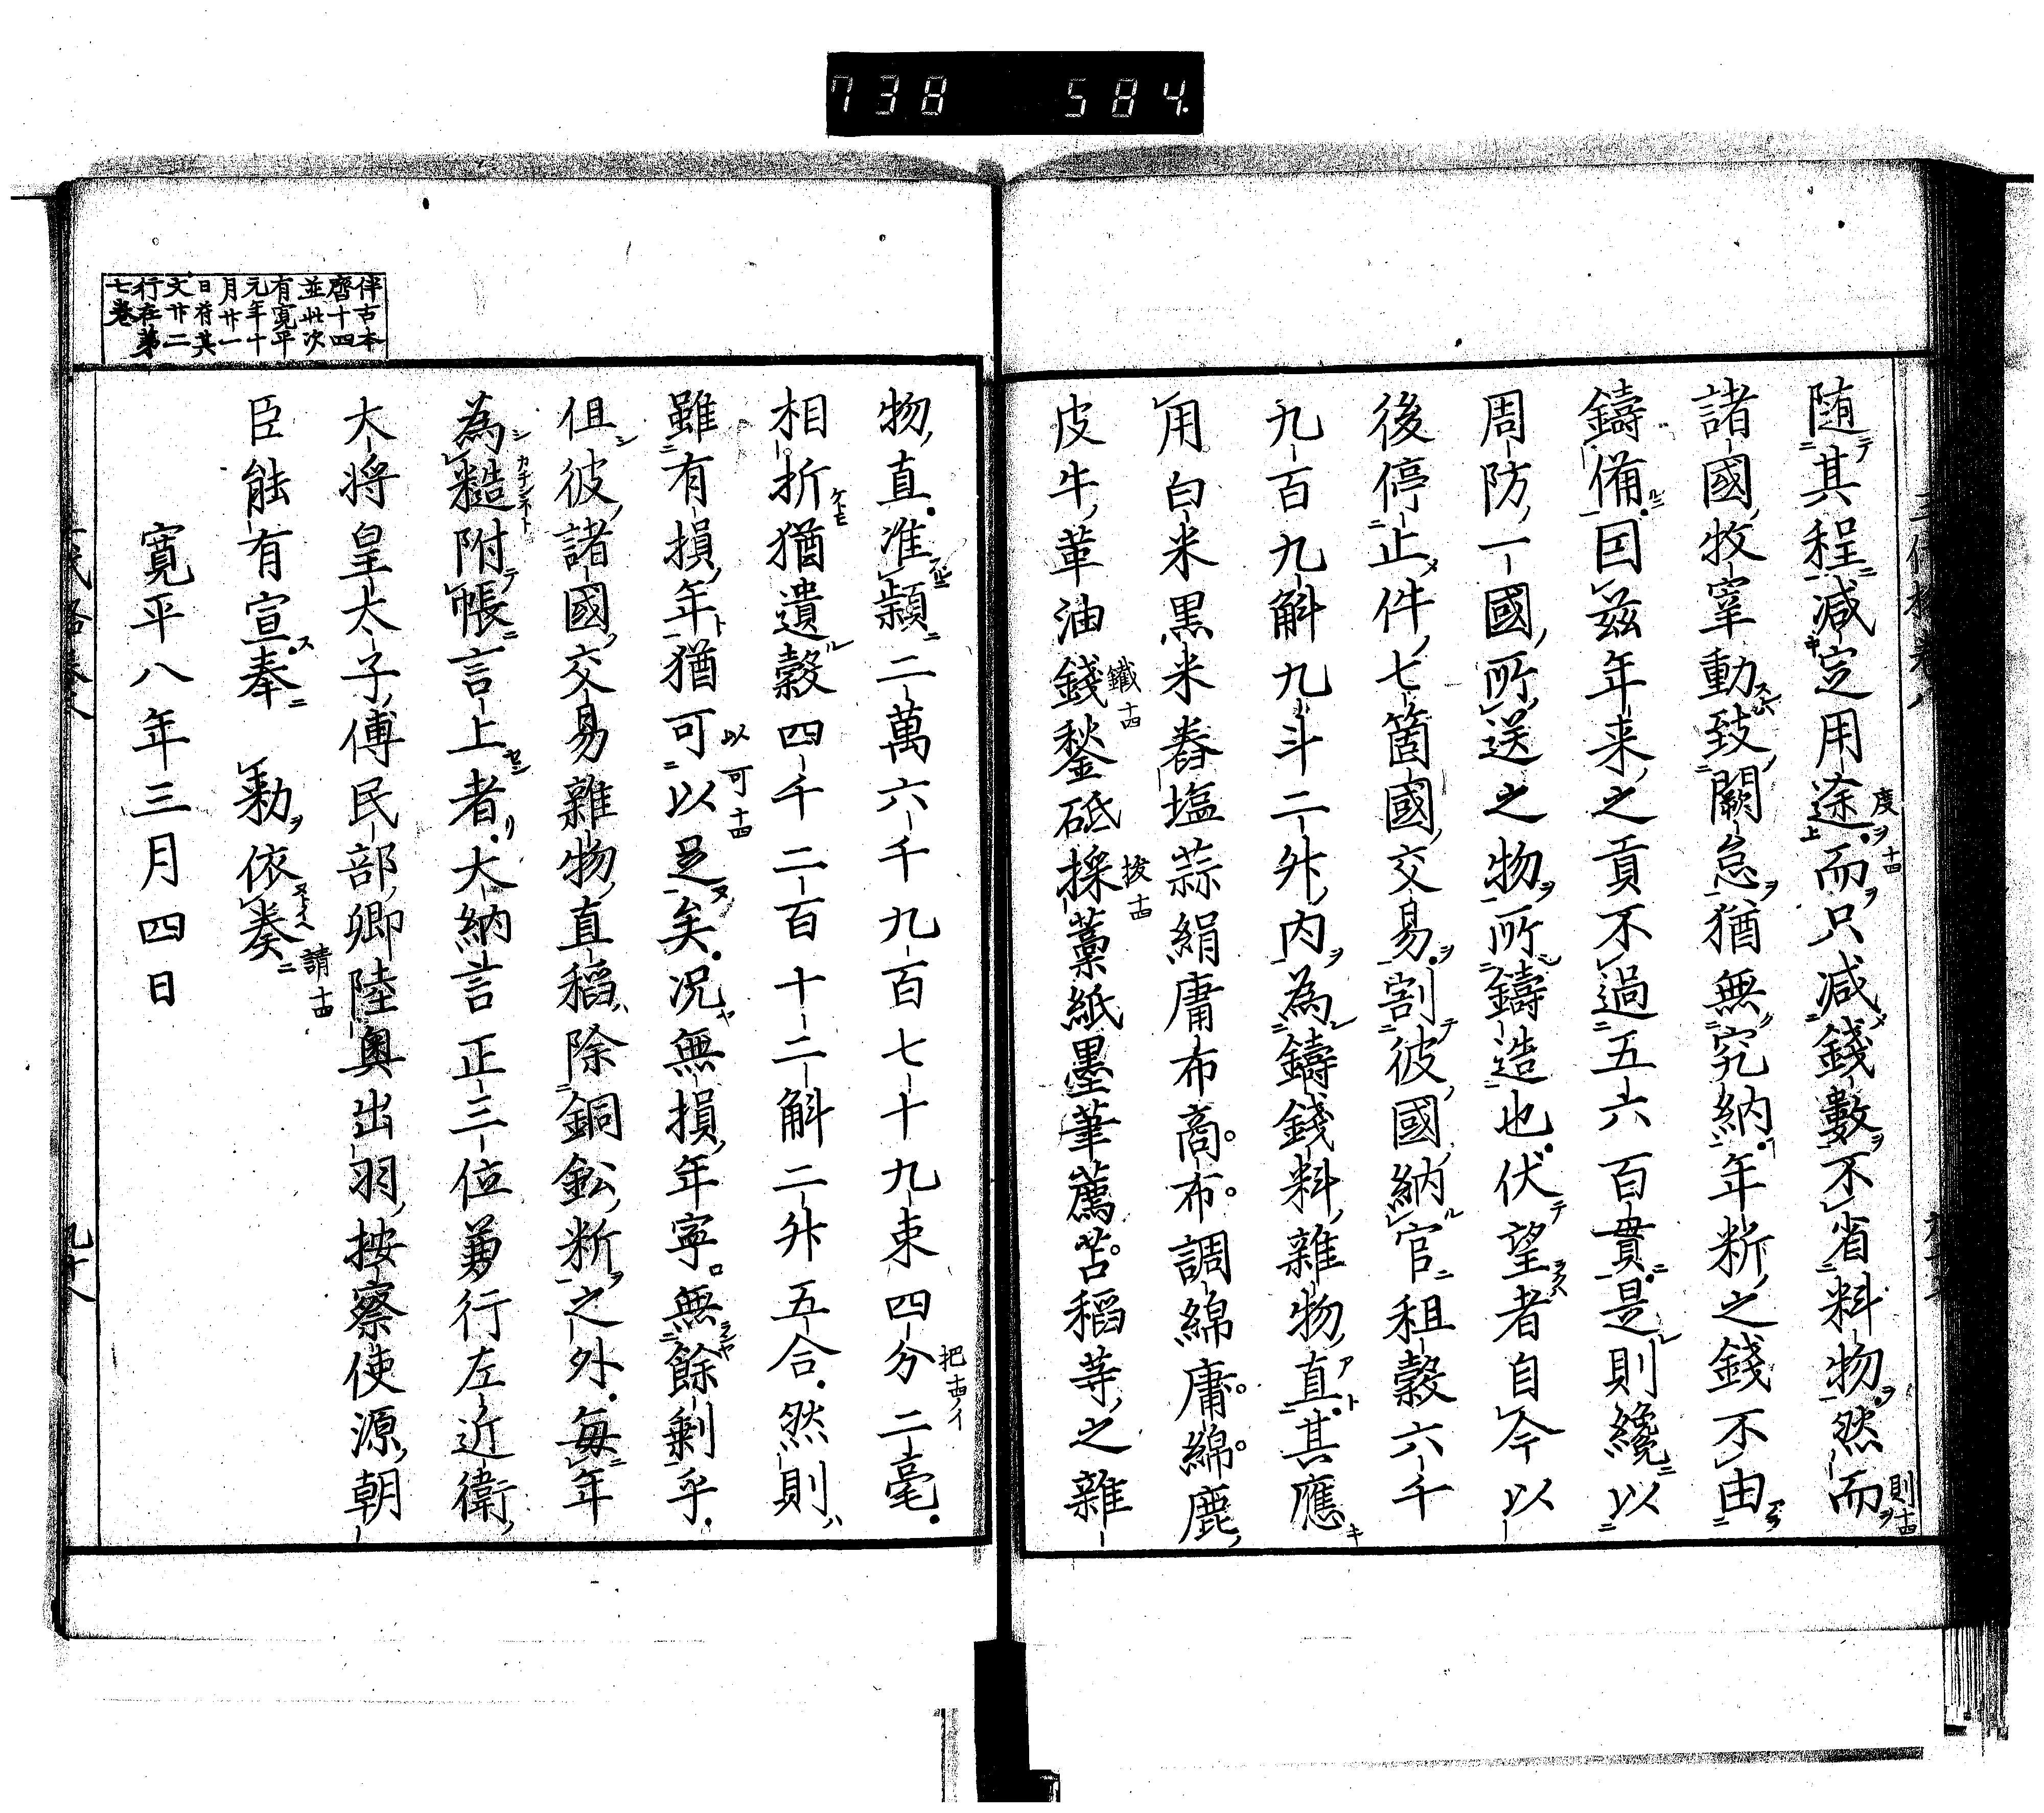 738 584
随其程減定用途而只減錢數不省料物然而
諸國牧宰動致闕怠猶無究納年断之錢不由
鑄備因茲年来之貢不過五六百貫是則纔以
周防一國所送之物所鑄造也伏望者自今以
後停止件七箇國交易割彼國納官租穀六千
九百九斛九斗二升内為鑄錢料雜物直其應
用白米黒米舂塩蒜絹庸布商布調綿庸綿鹿
皮牛革油錢鍫砥採藁紙墨筆薦苫稻等之雜
物直准穎二萬六千九百七十九束四分二毫
相折猶遺穀四千二百十二斛二升五合然則
雖有損年猶可以足矣况無損年寧無餘剰乎
但彼諸國交易雜物直稻除銅鈆断之外毎年
為糙附帳言上者大納言正三位兼行左近衛
大将皇太子傅民部卿陸奥出羽按察使源朝
臣能有宣奉勅依奏
寛平八年三月四日
伴古本
齊十四
並此次
有寛平
元年十
月廿一
日符其
文廿二
行在第
七巻
度ヲ十四
則十四
鐵十四
以可十四
請十四